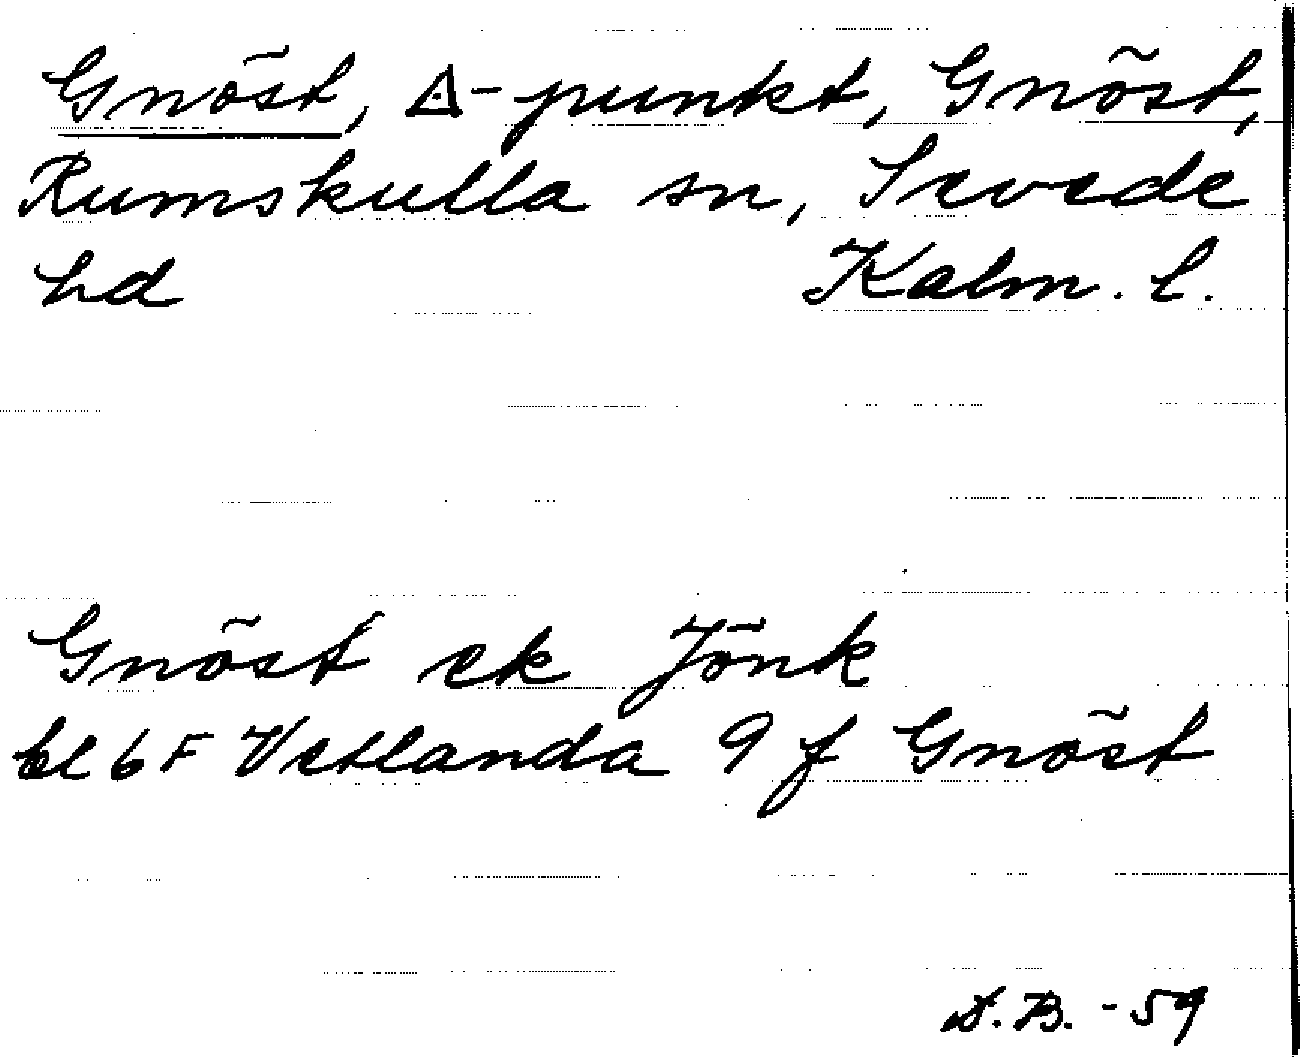 Gnöst, △-punkt, Gnöst,
Rumskulla sn, Sevede
hd Kalm. l.
Gnöst ek Jönk
bl 6 F Vetlanda 9 f Gnöst
D.B. -59